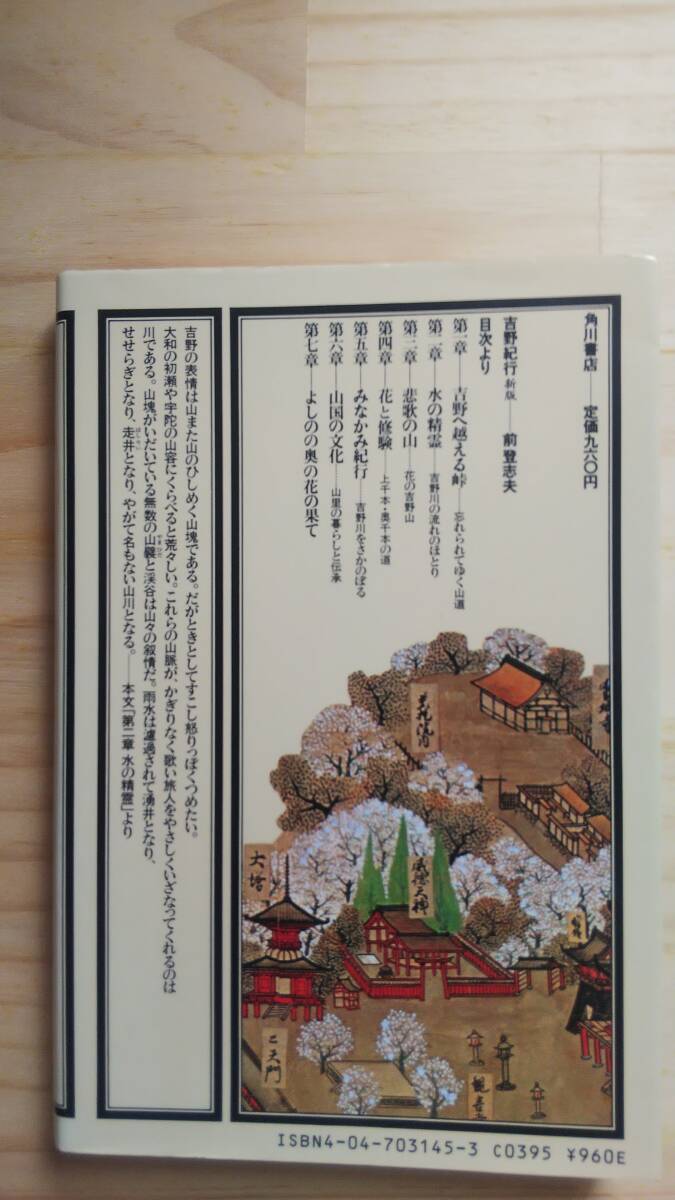 角川書店──定価九六〇円
吉野紀行 新版──前登志夫
目次より
第一章──吉野へ越える峠──忘れられてゆく山道
第二章──水の精霊 吉野川の流れのほとり
第三章 悲歌の山 花の吉野山
第四章 花と修験──上千本・奥千本の道
第五章──みなかみ紀行──吉野川をさかのぼる
第六章 山国の文化──山里の暮らしと伝承
第七章──よしのの奥の花の果て
吉野の表情は山また山のひしめく山塊である。だがときとしてすこし怒りっぽくつめたい。
大和の初瀬や宇陀の山容にくらべると荒々しい。これらの山脈が、かぎりなく歌い旅人をやさしくいざなってくれるのは
川である。山塊がいだいている無数の山襞と渓谷は山々の叙情だ。雨水は濾過されて湧井となり、
せせらぎとなり、走井となり、やがて名もない山川となる。──本文「第二章 水の精霊」より
大塔
二天門
観音
ISBN4-04-703145-3 C0395 ¥960E